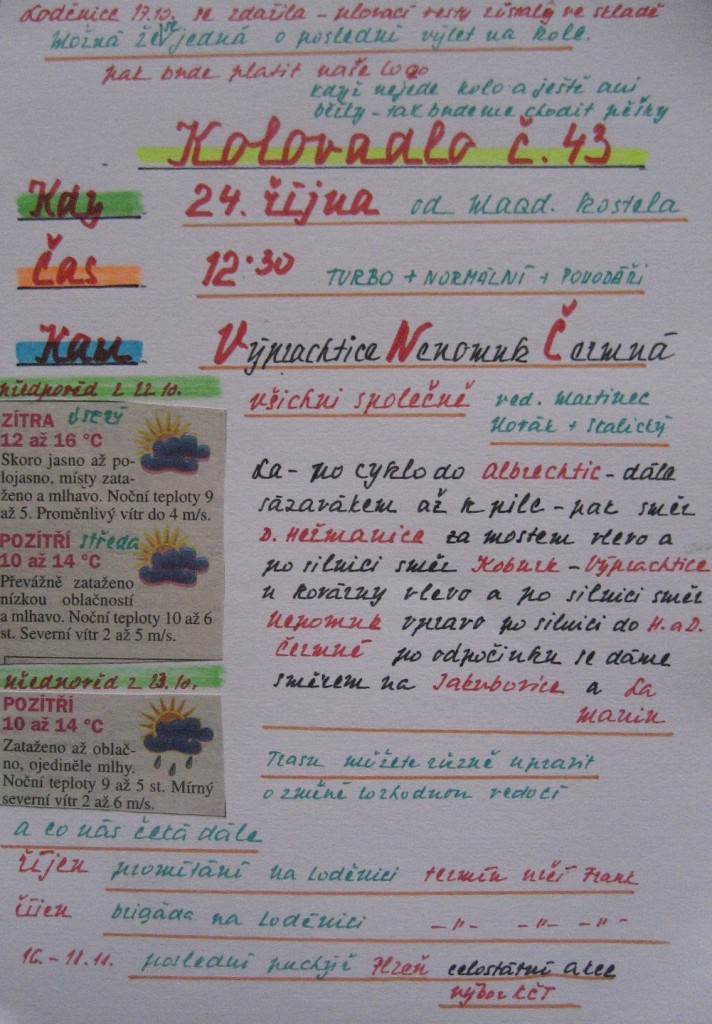 Loděnice 17.10. se zdařila - plovací vesty zůstaly ve skladě
Možná že jde jedná o poslední výlet na kole.
pak bude platit naše logo
když nejede kolo a ještě ani
běžky - tak budeme chodit pěšky
Kolovadlo č. 43
Kdy 24. října od Magd. kostela
Čas 12.30 TURBO + NORMÁLNÍ + POVODÁŘI
Kam Výprachtice Nepomuk Čermná
předpověd z 22.10.
všichni společně ved. Martinec
Horák + Skalický
ZÍTRA úterý
12 až 16 °C
Skoro jasno až po-
lojasno, místy zata-
ženo a mlhavo. Noční teploty 9
až 5. Proměnlivý vítr do 4 m/s.
POZÍTŘÍ středa
10 až 14 °C
Převážně zataženo
nízkou oblačností
a mlhavo. Noční teploty 10 až 6
st. Severní vítr 2 až 5 m/s.
předpověd z 23.10.
POZÍTŘÍ
10 až 14 °C
Zataženo až oblač-
no, ojediněle mlhy.
Noční teploty 9 až 5 st. Mírný
severní vítr 2 až 6 m/s.
La - po cyklo do Albrechtic - dále
sázavákem až k pile - pak směr
D. Heřmanice za mostem vlevo a
po silnici směr Koburk - Výprachtice
u kovárny vlevo a po silnici směr
Nepomuk vpravo po silnici do H. a D.
Čermné po odpočinku se dáme
směrem na Jakubovice a La
Marin
Trasu můžete různě upravit
o změně rozhodnou vedocí
a co nás četá dále
říjen promítání na Loděnici termín určí Frank
říjen brigáda na Loděnici -"- -"- -"-
16.-18.11. poslední puchýř Plzeň celostátní akce
výbor KČT